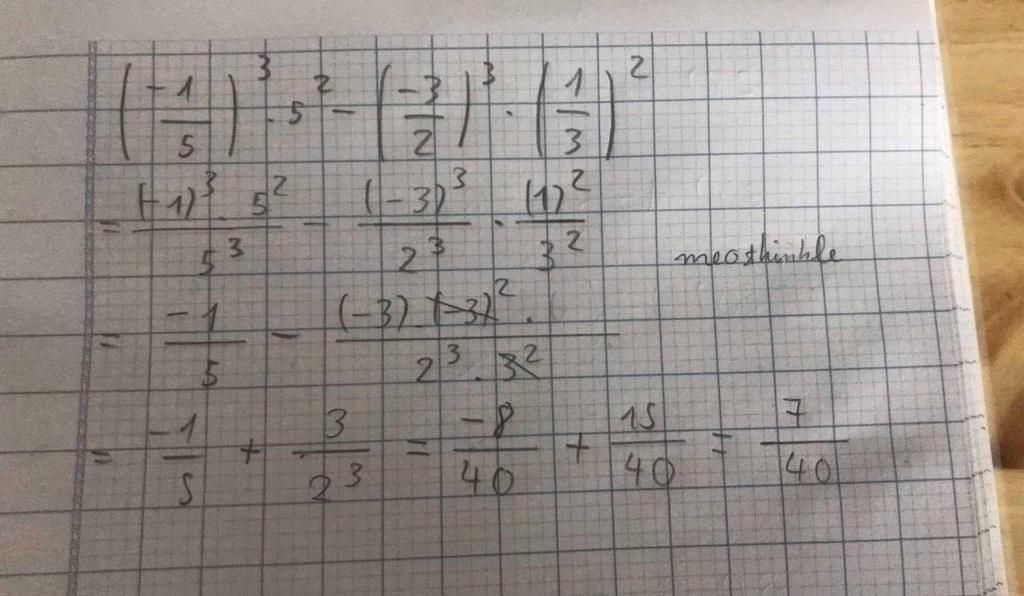 (-1/5)³ . 5² - (-3/2)³ . (1/3)²
= (-1)³ . 5² / 5³ - (-3)³ / 2³ . (1)² / 3²
meothinhle
= -1/5 - (-3) . (-3)² . / 2³ . 3²
= -1/5 + 3/2³ = -8/40 + 15/40 = 7/40